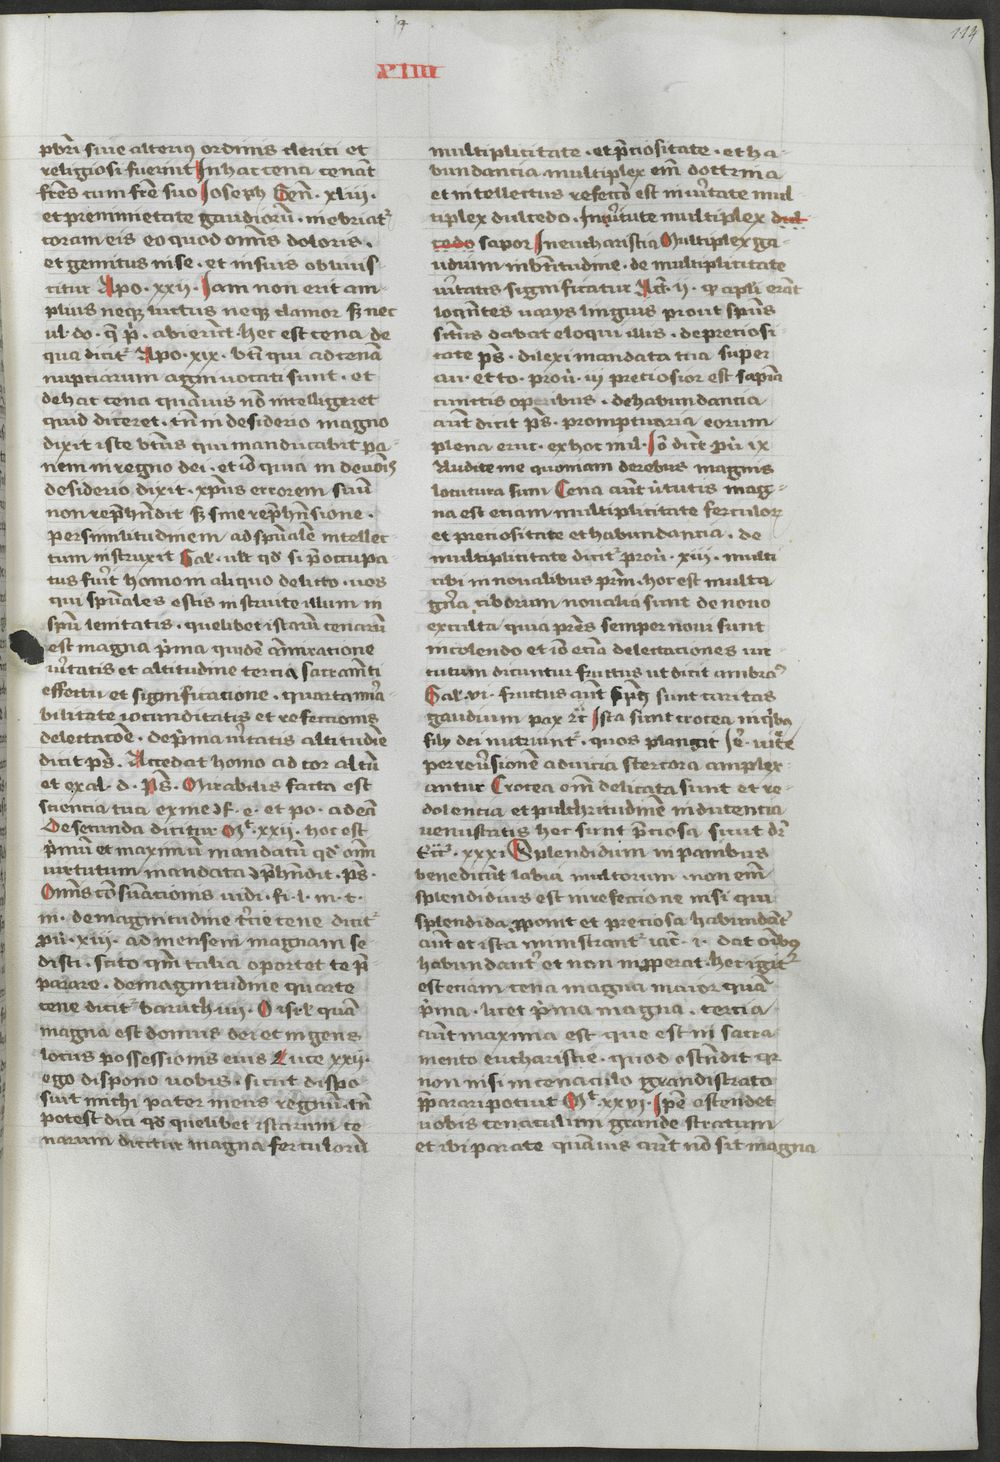 114
XIIII
pbr̄i siue alterius ordinis clerici et
religiosi fuerint In hac cena cenāt
fr̄es cum fr̄e suo Ioseph Gen̄. xliii.
et pre nimietate gaudiorū. inebriat᷑
coram eis eo quod om̄is doloris.
et gemitus in se. et in suis obliuis-
citur Apo. xxii. Iam non erit am-
plius neq̨ luctus neq̨ clamor sꝫ nec
ul. do. q̄ p̄. abierūt hec est cena de
qua dicit᷑ Apo. xix. bt̄i qui ad cenā
nuptiarum agni uocati sunt. et
de hac cena quāuis nō intelligeret
quid diceret. tn̄ in desiderio magno
dixit iste bt̄us qui manducabit pa-
nem in regno dei. et iō quia in deuoc̄is
desiderio dixit. xp̄us errorem suū
non rep̄hn̄dit sꝫ sine rep̄hn̄sione.
per similitudinem ad spūalem intellec-
tum instruxit Gal. ult qd̄ si p̄occupa-
tus fuīt homo in aliquo delicto. uos
qui spūales estis instruite illum in
spū lenitatis. quelibet istarū cenarū
est magna p̄ma quidē āmiratione
uītatis et altitudine tercia sacramēti
effectu et significatione. quarta mīa-
bilitate iocunditatis et refectionis
delectacōe. de p̄ma uītatis altitudīe
dicit ps̄. Accedat homo ad cor altū
et exal. d. Ps̄. Mirabilis facta est
sciencia tua ex me ↄf. e. et po. ad eā
De secunda dicitur Mt. xxii. hoc est
p̄mū et maximū mandatū qd̄ om̄
uirtutum mandata ↄp̄hn̄dit. ps̄.
Om̄is cōsūacionis uidi. fi. l. m. t.
in. de magnitudine t̄cie cene dicit᷑
pū. xiii. ad mensem magnam se-
disti. scito qm̄ talia oportet te p̄-
parare. de magnitudine quarte
cene dicit᷑ baruch iii. O isrl̄ quā
magna est domus dei et ingens
locus possessionis eius Luce xxii.
ego dispono uobis. sicut dispo-
suit michi pater meus regnū. tn̄
potest dici qd̄ quelibet istarum ce-
narum dicitur magna ferculorū
multiplicitate. et p̄ciositate. et ha-
bundancia. multiplex em̄ doctrina
et intellectus refectō est in uītate mul-
tiplex dulcedo. In uītute multiplex dul-
cedo sapor In eucharistia Multiplex ga-
udium in bt̄itudine. de multiplicitate
uītatis significatur Act̄. ii. q̄ apli erāt
loqn̄tes uarijs linguis prout spūs
sc̄tūs dabat eloqui illis. de preciosi-
tate ps̄. dilexi mandata tua super
au. et to. prou̇. iij preciosior est sapīa
cunctis operibus. de habundancia
aūt dicit ps̄. promptuaria eorum
plena eruc. ex hoc in il. Iō dicit pū ix
Audite me quoniam de rebus magnis
locutura sum Cena aūt uītutis mag-
na est etiam multiplicitate ferculoꝝ
et preciositate et habundancia. de
multiplicitate dicit᷑ prou̇. xiii. multi
cibi in noualibus prm̄. hoc est multa
gn̄a ciborum noualia sunt de nouo
exculta quia prēs semper noui sunt
in colendo et iō etiā delectaciones uir-
tutum dicuntur fructus ut dicit ambro᷑
Gal. vi. fructus aūt spūs sunt caritas
gaudium pax ⁊c̄ Ista sunt crocea in q̇bꝫ
filij dei nutriunt᷑. quos plangit Ie᷑. uītē
per reūsionē ad uicia stercora amplex-
antur Crocea em̄ delicata sunt et re-
dolencia et pulchritudinē inducencia
uenustatis hec sunt p̄ciosa sicut dr̄
Ecc̄. xxxi Splendidum in panibus
benedicūt labia multorum. non em̄
splendidius est in refectione nisi qui
splendida ꝓponit et preciosa habundāt᷑
aūt et ista ministrant᷑ iac̄. i. dat oībꝫ
habundant᷑ et non inꝓperat. hec igit᷑
est etiam cena magna maior quā
p̄ma. licet p̄ma magna. tercia
aūt maxima est que est in sacra-
mento eucharistie. quod ostn̄dit qr̄
non nisi in cenaculo grandi strato
p̄parari potuit Mt. xxvi. Ipē ostendet
uobis cenaculum grande stratum
et ibi parate quāuis aūt nō sit magna